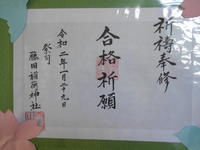 祈祷奉修
合格祈願
令和二年一月二十九日
祭司
藤田稲荷神社